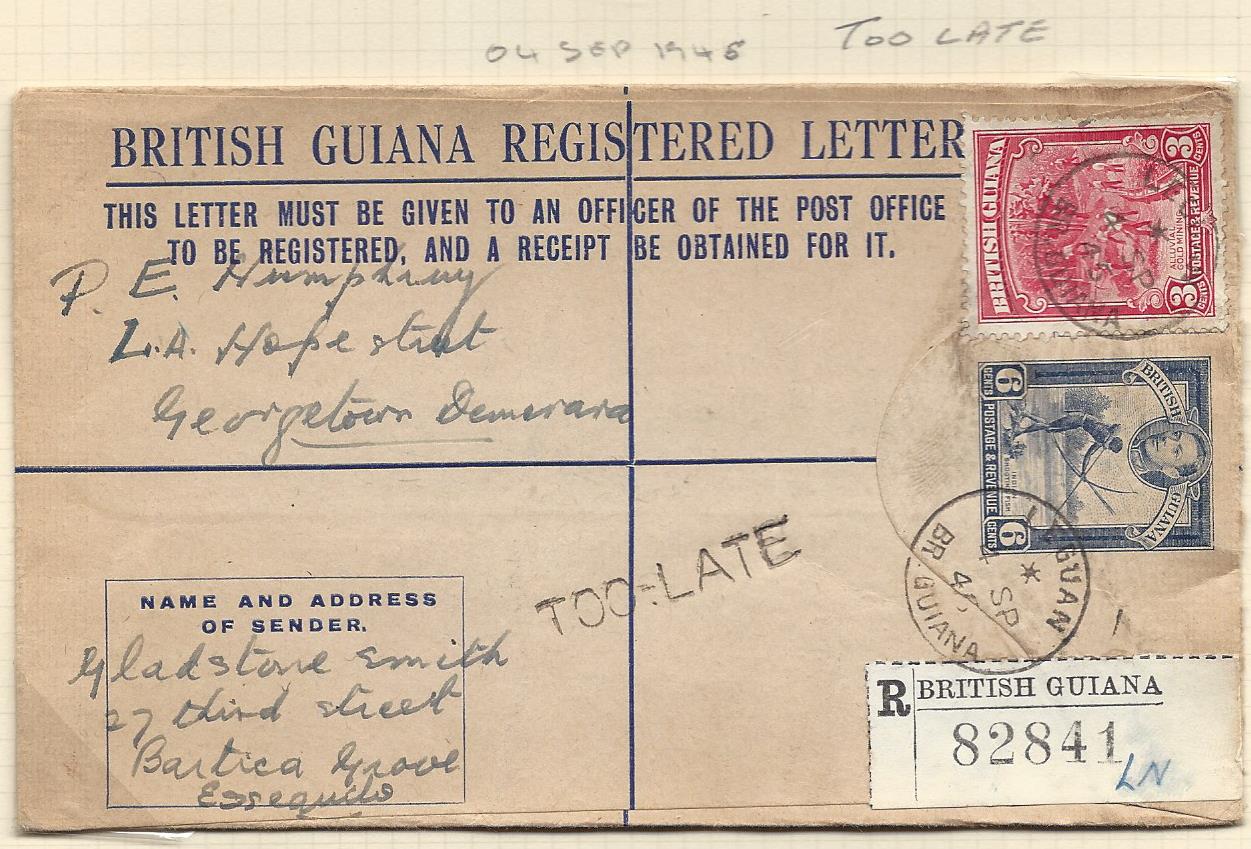 04 SEP 1945 TOO LATE
BRITISH GUIANA REGISTERED LETTER
THIS LETTER MUST BE GIVEN TO AN OFFICER OF THE POST OFFICE
TO BE REGISTERED, AND A RECEIPT BE OBTAINED FOR IT.
P. E. Humphrey
L.A. Hope street
Georgetown Demerara
BRITISH GUIANA
ALLUVIAL
GOLD MINING
POSTAGE & REVENUE
3 CENTS
3 CENTS
4 SP
45
BR. GUIANA
BRITISH GUIANA
6 CENTS POSTAGE & REVENUE 6 CENTS
INDIAN
SHOOTING FISH
LEGUAN
4 SP
45
BR. GUIANA
TOO-LATE
NAME AND ADDRESS
OF SENDER.
Gladstone Smith
27 third street
Bartica Grove
Essequibo
R BRITISH GUIANA
82841
LN